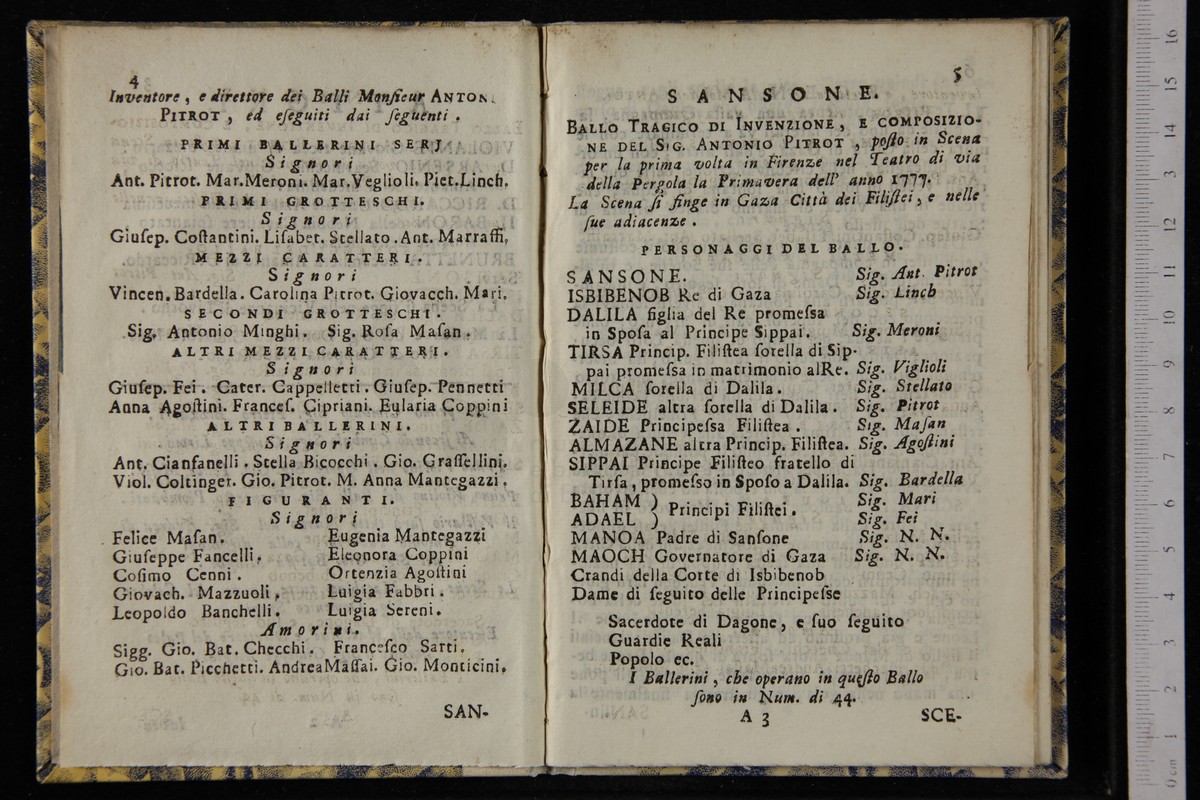 4
Inventore, e direttore dei Balli Monſieur ANTON.
PITROT, ed eſeguiti dai ſeguenti.
PRIMI BALLERINI SERJ
Signori
Ant. Pitrot. Mar.Meroni. Mar.Veglioli. Piet.Linch.
PRIMI GROTTESCHI.
Signori
Giuſep. Coſtantini. Liſabet. Stellato. Ant. Marraffi,
MEZZI CARATTERI.
Signori
Vincen. Bardella. Carolina Pitrot. Giovacch. Mari.
SECONDI GROTTESCHI.
Sig. Antonio Minghi. Sig. Roſa Maſan.
ALTRI MEZZI CARATTERI.
Signori
Giuſep. Fei. Cater. Cappelletti. Giuſep. Pennetti
Anna Agoſtini. Franceſ. Cipriani. Eularia Coppini
ALTRI BALLERINI.
Signori
Ant. Cianfanelli. Stella Bicocchi. Gio. Graſſellini.
Viol. Coltinger. Gio. Pitrot. M. Anna Mantegazzi.
FIGURANTI.
Signori
Felice Maſan. Eugenia Mantegazzi
Giuſeppe Fancelli. Eleonora Coppini
Coſimo Cenni. Ortenzia Agoſtini
Giovach. Mazzuoli. Luigia Fabbri.
Leopoldo Banchelli. Luigia Sereni.
Amorini.
Sigg. Gio. Bat. Checchi. Franceſco Sarti.
Gio. Bat. Picchetti. Andrea Maſſai. Gio. Monticini.
SAN-
5
SANSONE.
BALLO TRAGICO DI INVENZIONE, E COMPOSIZIO-
NE DEL SIG. ANTONIO PITROT, poſto in Scena
per la prima volta in Firenze nel Teatro di via
della Pergola la Primavera dell' anno 1777.
La Scena ſi finge in Gaza Città dei Filiſtei, e nelle
ſue adiacenze.
PERSONAGGI DEL BALLO.
SANSONE. Sig. Ant. Pitrot
ISBIBENOB Re di Gaza Sig. Linch
DALILA figlia del Re promeſsa
in Spoſa al Principe Sippai. Sig. Meroni
TIRSA Princip. Filiſtea ſorella di Sip-
pai promeſsa in matrimonio alRe. Sig. Viglioli
MILCA ſorella di Dalila. Sig. Stellato
SELEIDE altra ſorella di Dalila. Sig. Pitrot
ZAIDE Principeſsa Filiſtea. Sig. Maſan
ALMAZANE altra Princip. Filiſtea. Sig. Agoſtini
SIPPAI Principe Filiſteo fratello di
Tirſa, promeſso in Spoſo a Dalila. Sig. Bardella
BAHAM ) Principi Filiſtei. Sig. Mari
ADAEL ) Sig. Fei
MANOA Padre di Sanſone Sig. N. N.
MAOCH Governatore di Gaza Sig. N. N.
Crandi della Corte di Isbibenob
Dame di ſeguito delle Principeſse
Sacerdote di Dagone, e ſuo ſeguito
Guardie Reali
Popolo ec.
I Ballerini, che operano in queſto Ballo
ſono in Num. di 44.
A 3 SCE-
0 cm 1 2 3 4 5 6 7 8 9 10 11 12 13 14 15 16